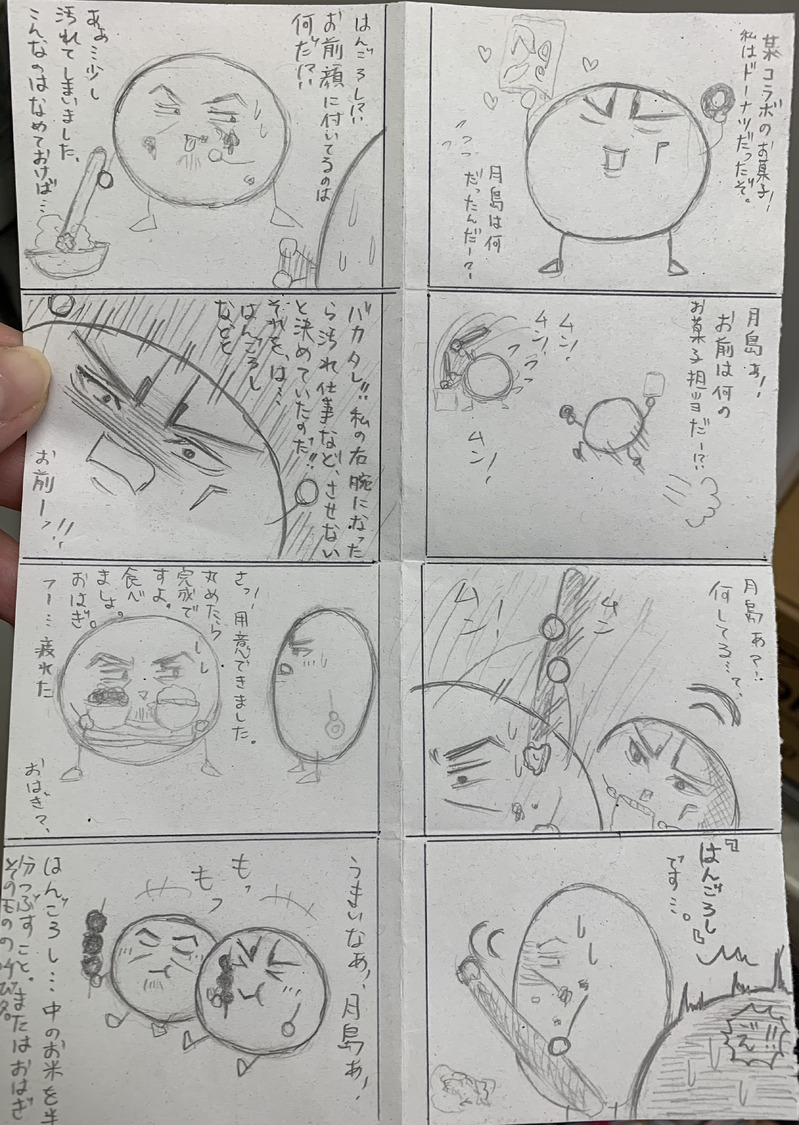 某コラボのお菓子!
私はドーナツだったぞ。
月島は何
だったんだー?
月島ぁ!
お前は何の
お菓子担当だー!?
ムン!
ムン!
ムン!
月島ぁ?
何してる…て、
ムン
ムン!
『はんごろし』
です…。
はんごろし!?
お前顔に付いてるのは
何だ!?
あぁ…少し
汚れてしまいました。
こんなのはなめておけば…
バカタレ!!私の右腕になった
ら汚れ仕事など、させない
と決めていたのだ!!
それを、は…、
はんごろし
などと
お前ーっ!!
さっ!用意できました。
丸めたら
完成で
すよ。
食べ
ましょ。
おはぎ。
フー…疲れた
おはぎ?
うまいなぁ!月島ぁ!
もっ
もっ
はんごろし…中のお米を半
分つぶすこと。またはおはぎ
そのものの呼び名。